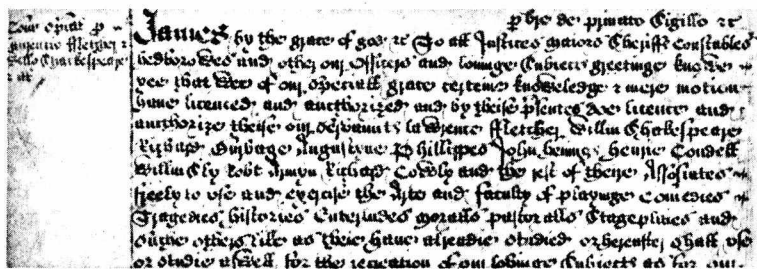 Com̃ spiãl p
Laurentio Fletcher &
Willo Shakespeare
& al
p bre de privato Sigillo &c
James by the grace of god &c To all Justices maiors Sheriffs Constables
hedborowes and other our officers and lovinge Subiects greetinge knowe
yee that wee of our speciall grace certeine knowledge & mere motion
have licenced and aucthorized and by theise pñtes doe licence and
aucthorize theise our Servaunts Lawrence Fletcher Willm Shakespeare
Richard Burbage Augustyne Phillippes John henings henrie Condell
Willm Sly Robt Armyn Richard Cowly and the rest of theire Assosiates
freely to use and exercise the Arte and faculty of playinge Comedies
Tragedies histories Enterludes moralls pastoralls Stageplaies and
Suche others like as theie have alreadie studied or hereafter shall use
or studie aswell for the recreation of our lovinge Subiects as for our